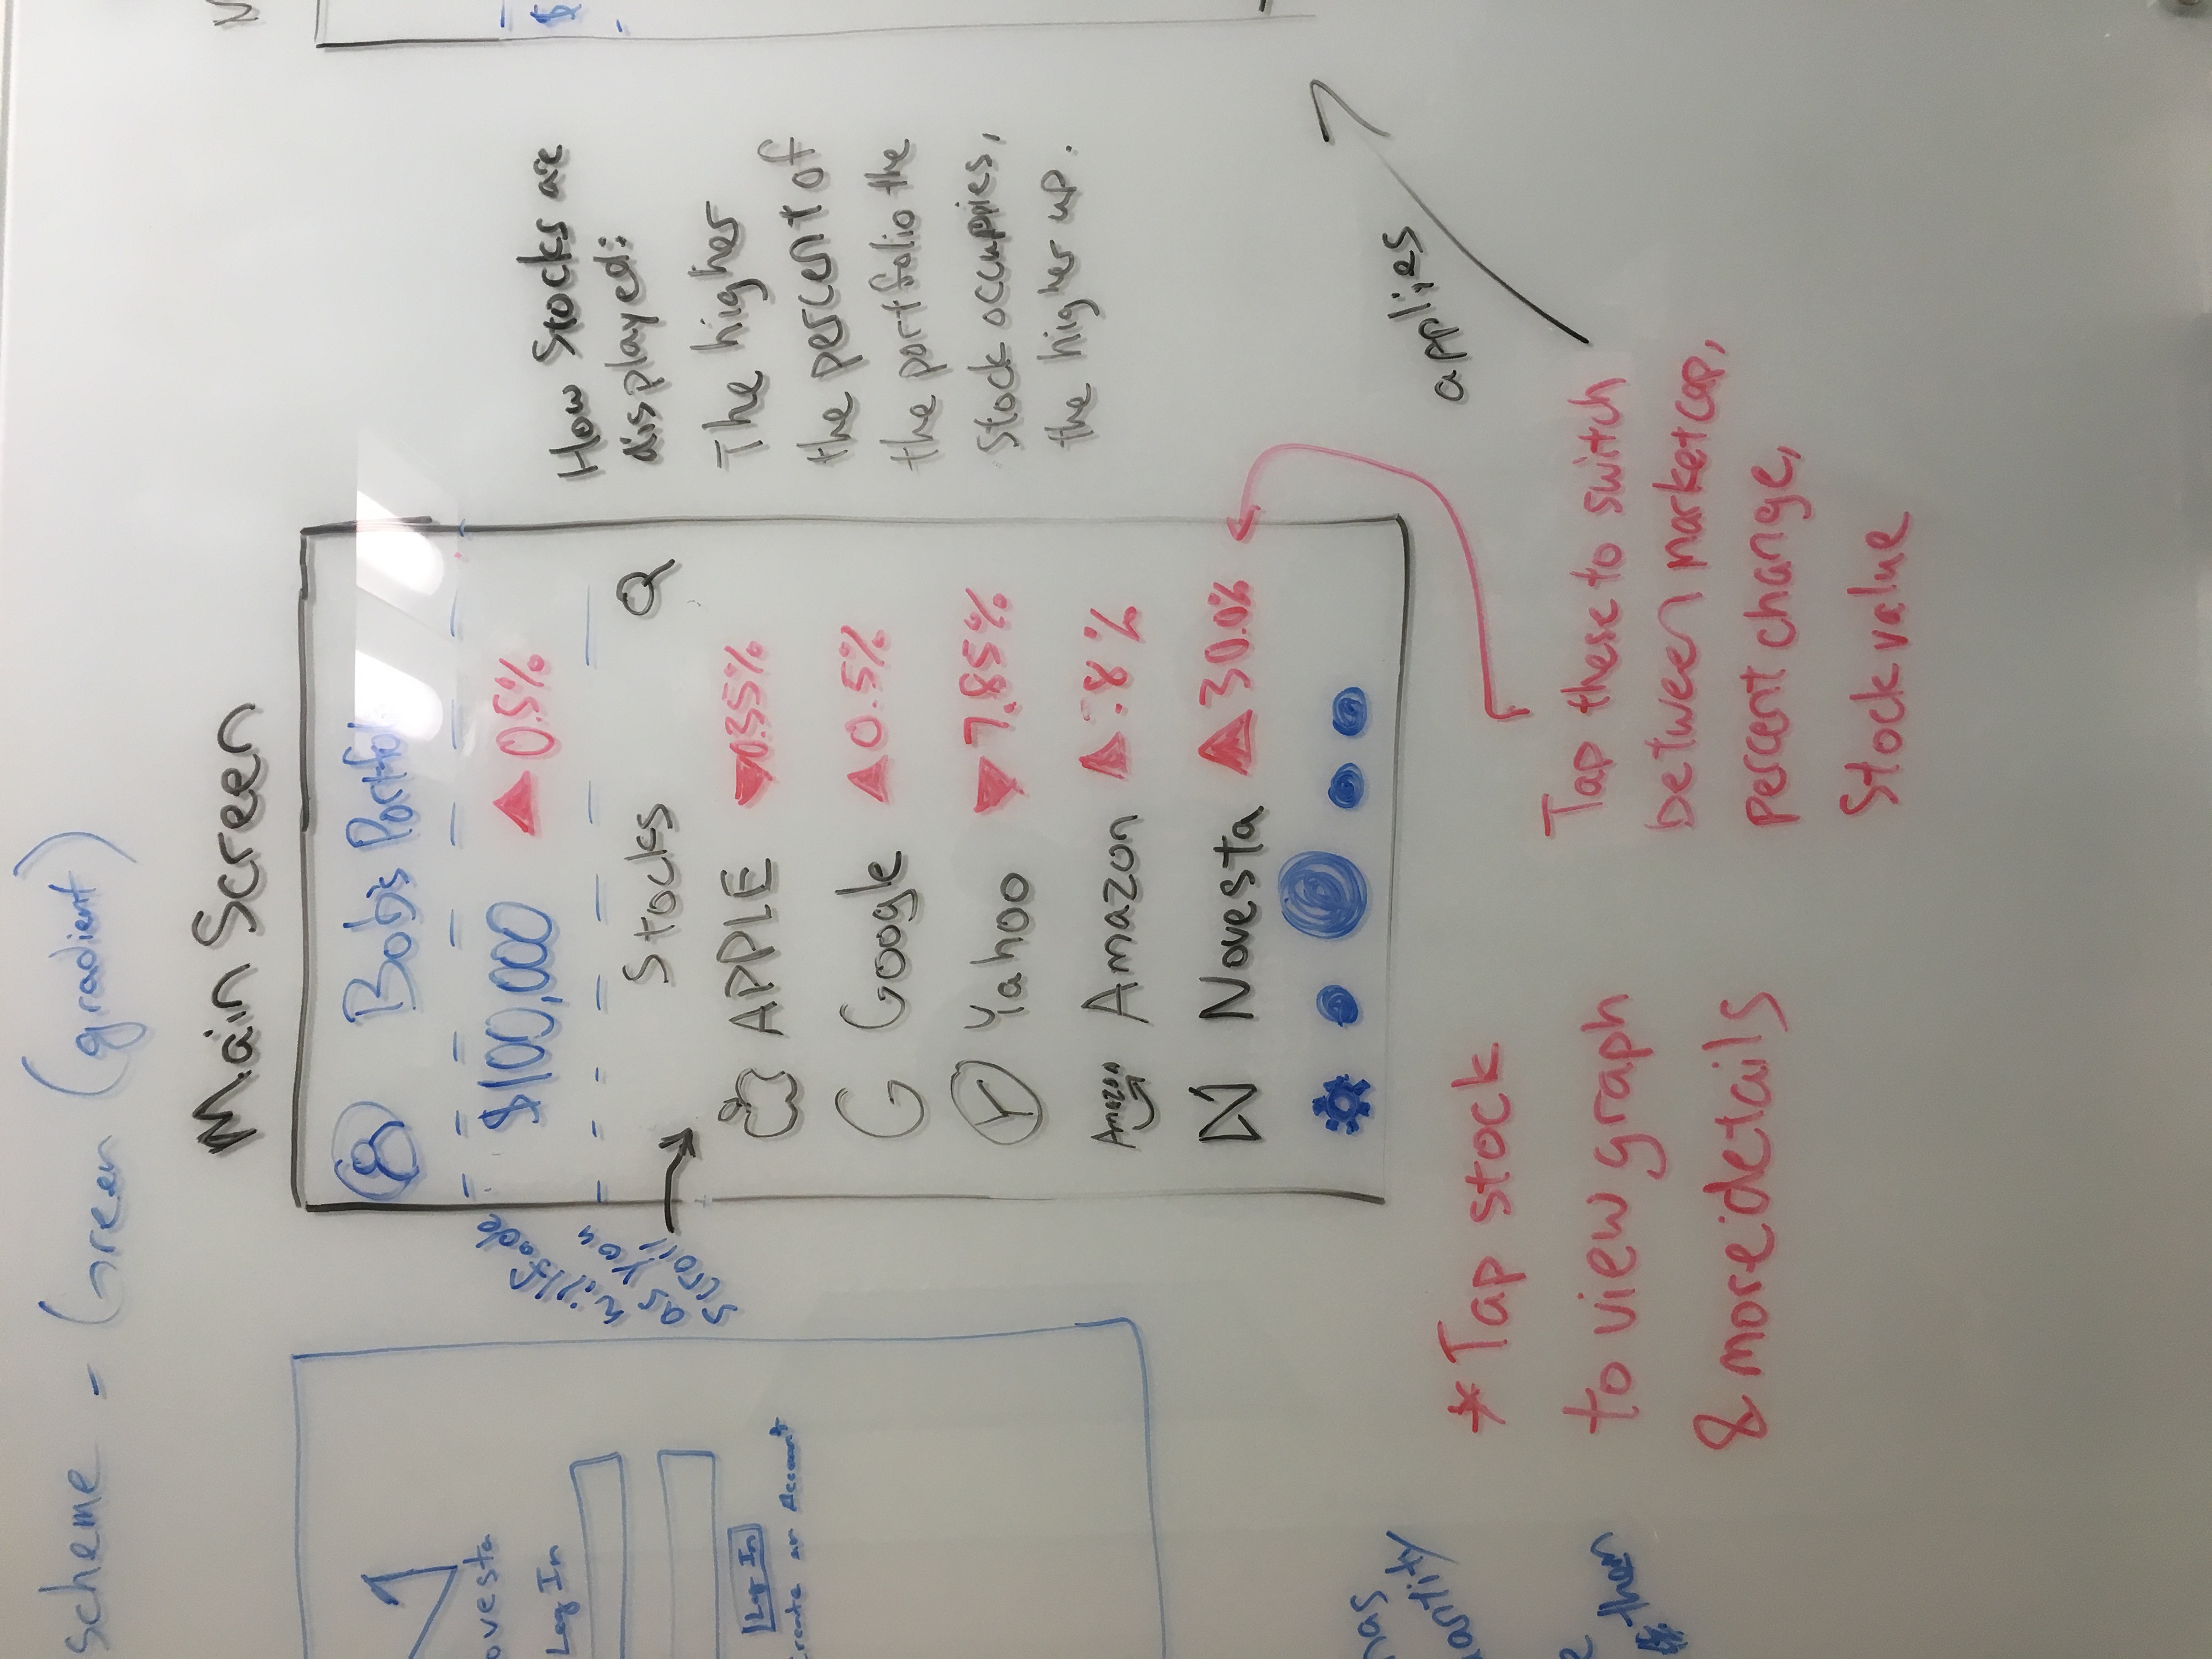 scheme - Green (gradient)
Main Screen
ovesta
Log In
Log In
Create an Account
will fade
as you
scroll
Bob's Portfol
$100,000 ▲ 0.5%
Stocks
APPLE ▼ 0.35%
G Google ▲ 0.5%
Y Yahoo ▼ 7.85%
Amazon Amazon ▲ :8%
N Novesta ▲ 30.0%
How Stocks are
displayed:
The higher
the percent of
the portfolio the
Stock occuppies,
the higher up.
$
has
uantity
them
* Tap stock
to view graph
& more details
Tap these to switch
between market cap,
percent change,
Stock value
applies